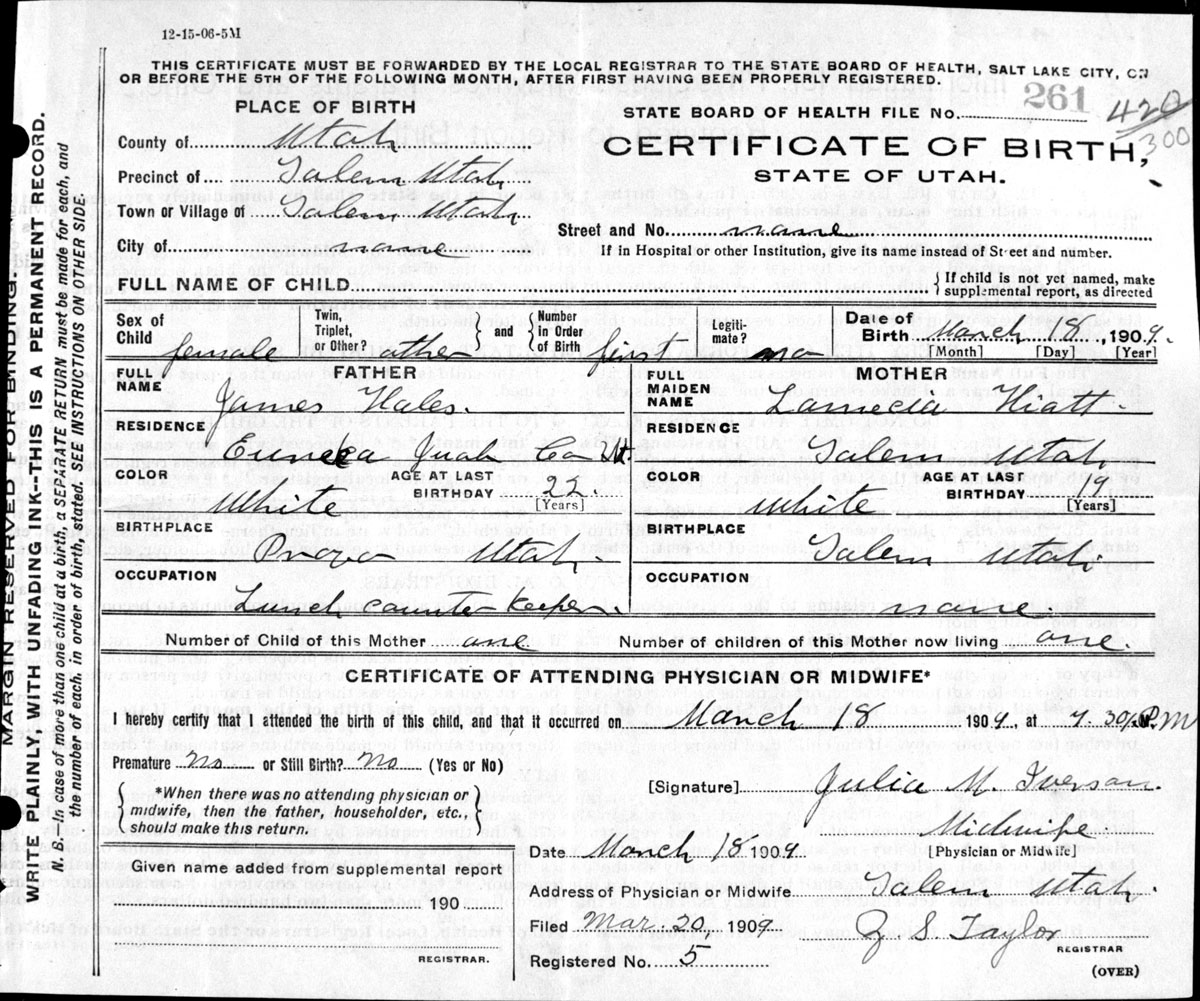 12-15-06-5M
THIS CERTIFICATE MUST BE FORWARDED BY THE LOCAL REGISTRAR TO THE STATE BOARD OF HEALTH, SALT LAKE CITY, ON
OR BEFORE THE 5TH OF THE FOLLOWING MONTH, AFTER FIRST HAVING BEEN PROPERLY REGISTERED.
PLACE OF BIRTH
County of Utah
Precinct of Salem Utah
Town or Village of Salem Utah
City of none
STATE BOARD OF HEALTH FILE No. 261 420
300
CERTIFICATE OF BIRTH,
STATE OF UTAH.
Street and No. none
If in Hospital or other Institution, give its name instead of Street and number.
FULL NAME OF CHILD
{ If child is not yet named, make
supplemental report, as directed
Sex of Child female
Twin, Triplet, or Other? other
} and { Number in Order of Birth first
Legitimate? no
Date of Birth March 18, 1909.
[Month] [Day] [Year]
FATHER
FULL NAME James Hales.
RESIDENCE
Eureka Juab Co Ut
COLOR White
AGE AT LAST BIRTHDAY 22.
[Years]
BIRTHPLACE
Provo Utah.
OCCUPATION
Lunch counter keeper.
MOTHER
FULL MAIDEN NAME Lamecia Hiatt.
RESIDENCE
Salem Utah
COLOR White
AGE AT LAST BIRTHDAY 19
[Years]
BIRTHPLACE
Salem Utah
OCCUPATION
none.
Number of Child of this Mother one
Number of children of this Mother now living one.
CERTIFICATE OF ATTENDING PHYSICIAN OR MIDWIFE*
I hereby certify that I attended the birth of this child, and that it occurred on March 18 1909, at P.M
Premature? No or Still Birth? No (Yes or No)
{ *When there was no attending physician or
midwife, then the father, householder, etc.,
should make this return. }
Given name added from supplemental report
190
REGISTRAR.
[Signature] Julia M. Iverson.
Midwife
[Physician or Midwife]
Date March 18 1909
Address of Physician or Midwife. Salem Utah.
Filed Mar. 20, 1909
Registered No. 5
Z S Taylor
REGISTRAR
(OVER)
MARGIN RESERVED FOR BINDING.
WRITE PLAINLY, WITH UNFADING INK--THIS IS A PERMANENT RECORD.
N. B. In case of more than one child at a birth, a SEPARATE RETURN must be made for each, and
the number of each, in order of birth, stated. SEE INSTRUCTIONS ON OTHER SIDE.